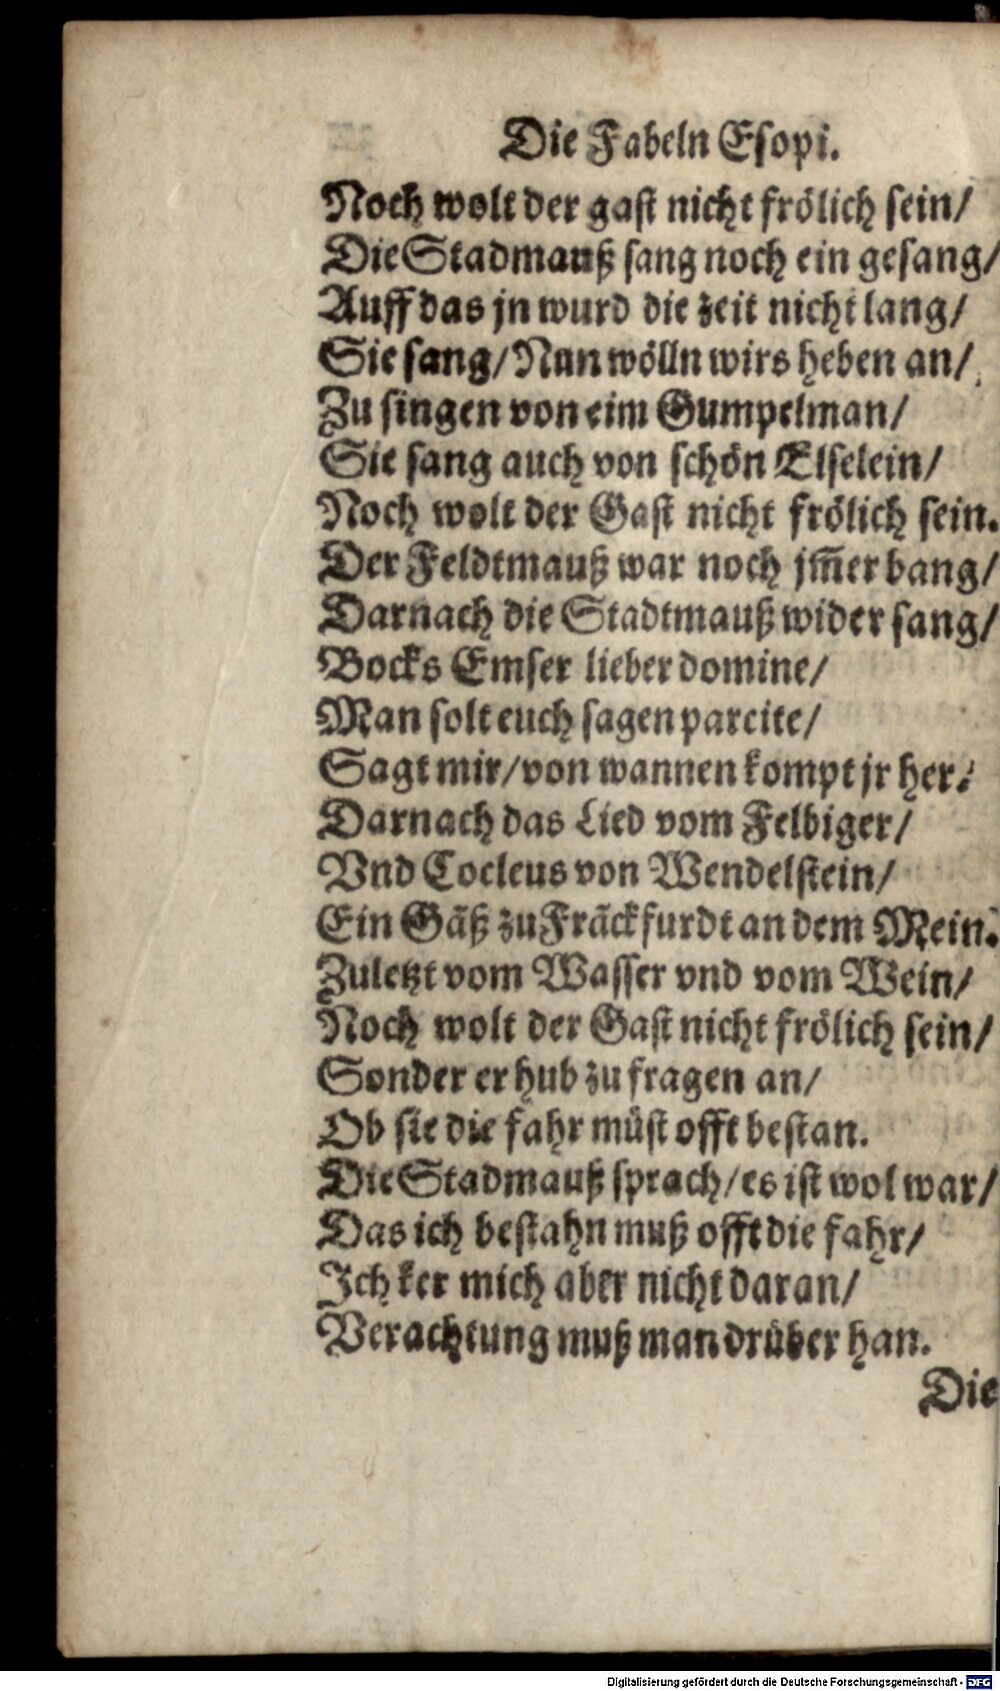 Die Fabeln Esopi.
Noch wolt der gast nicht frölich sein/
Die Stadmauß sang noch ein gesang/
Auff das jn wurd die zeit nicht lang/
Sie sang/ Nun wölln wirs heben an/
Zu singen von eim Gumpelman/
Sie sang auch von schön Elselein/
Noch wolt der Gast nicht frölich sein.
Der Feldtmauß war noch jm̄er bang/
Darnach die Stadtmauß wider sang/
Bocks Emser lieber domine/
Man solt euch sagen parcite/
Sagt mir/ von wannen kompt jr her?
Darnach das Lied vom Felbiger/
Vnd Cocleus von Wendelstein/
Ein Gäß zu Frāckfurdt an dem Mein.
Zuletzt vom Wasser vnd vom Wein/
Noch wolt der Gast nicht frölich sein/
Sonder er hub zu fragen an/
Ob sie die fahr müst offt bestan.
Die Stadmauß sprach/ es ist wol war/
Das ich bestahn muß offt die fahr/
Ich ker mich aber nicht daran/
Verachtung muß man drüber han.
Die
Digitalisierung gefördert durch die Deutsche Forschungsgemeinschaft - DFG